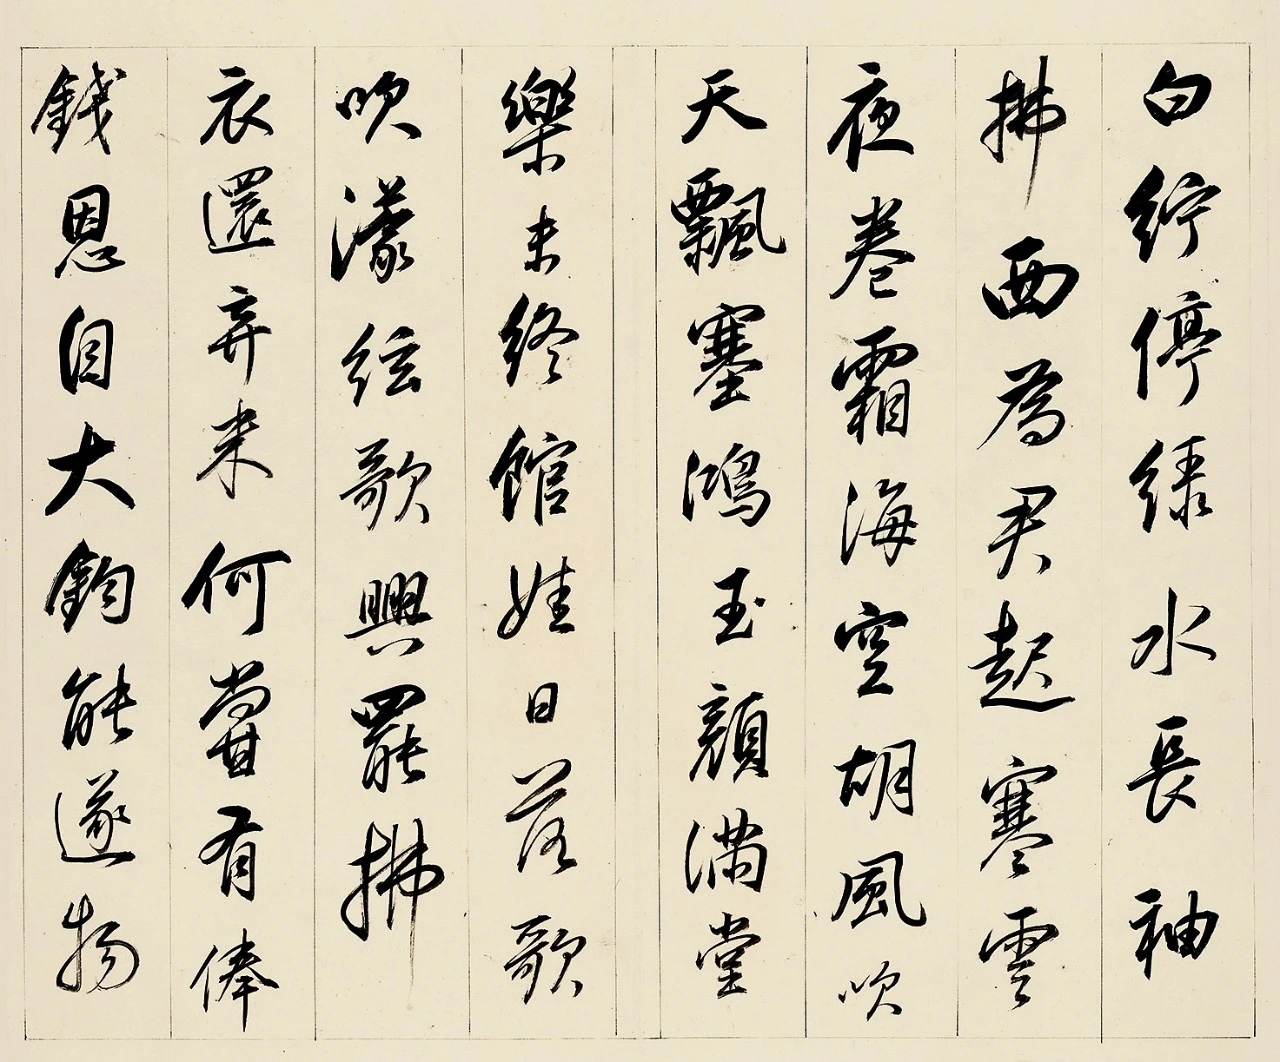 白紵停綠水長袖
拂面為君起寒雲
夜卷霜海空胡風吹
天飄塞鴻玉顏滿堂
樂未終館娃日落歌
吹濛絃歌興罷拂
衣還弃来何甞有俸
錢恩自大鈞能遂物